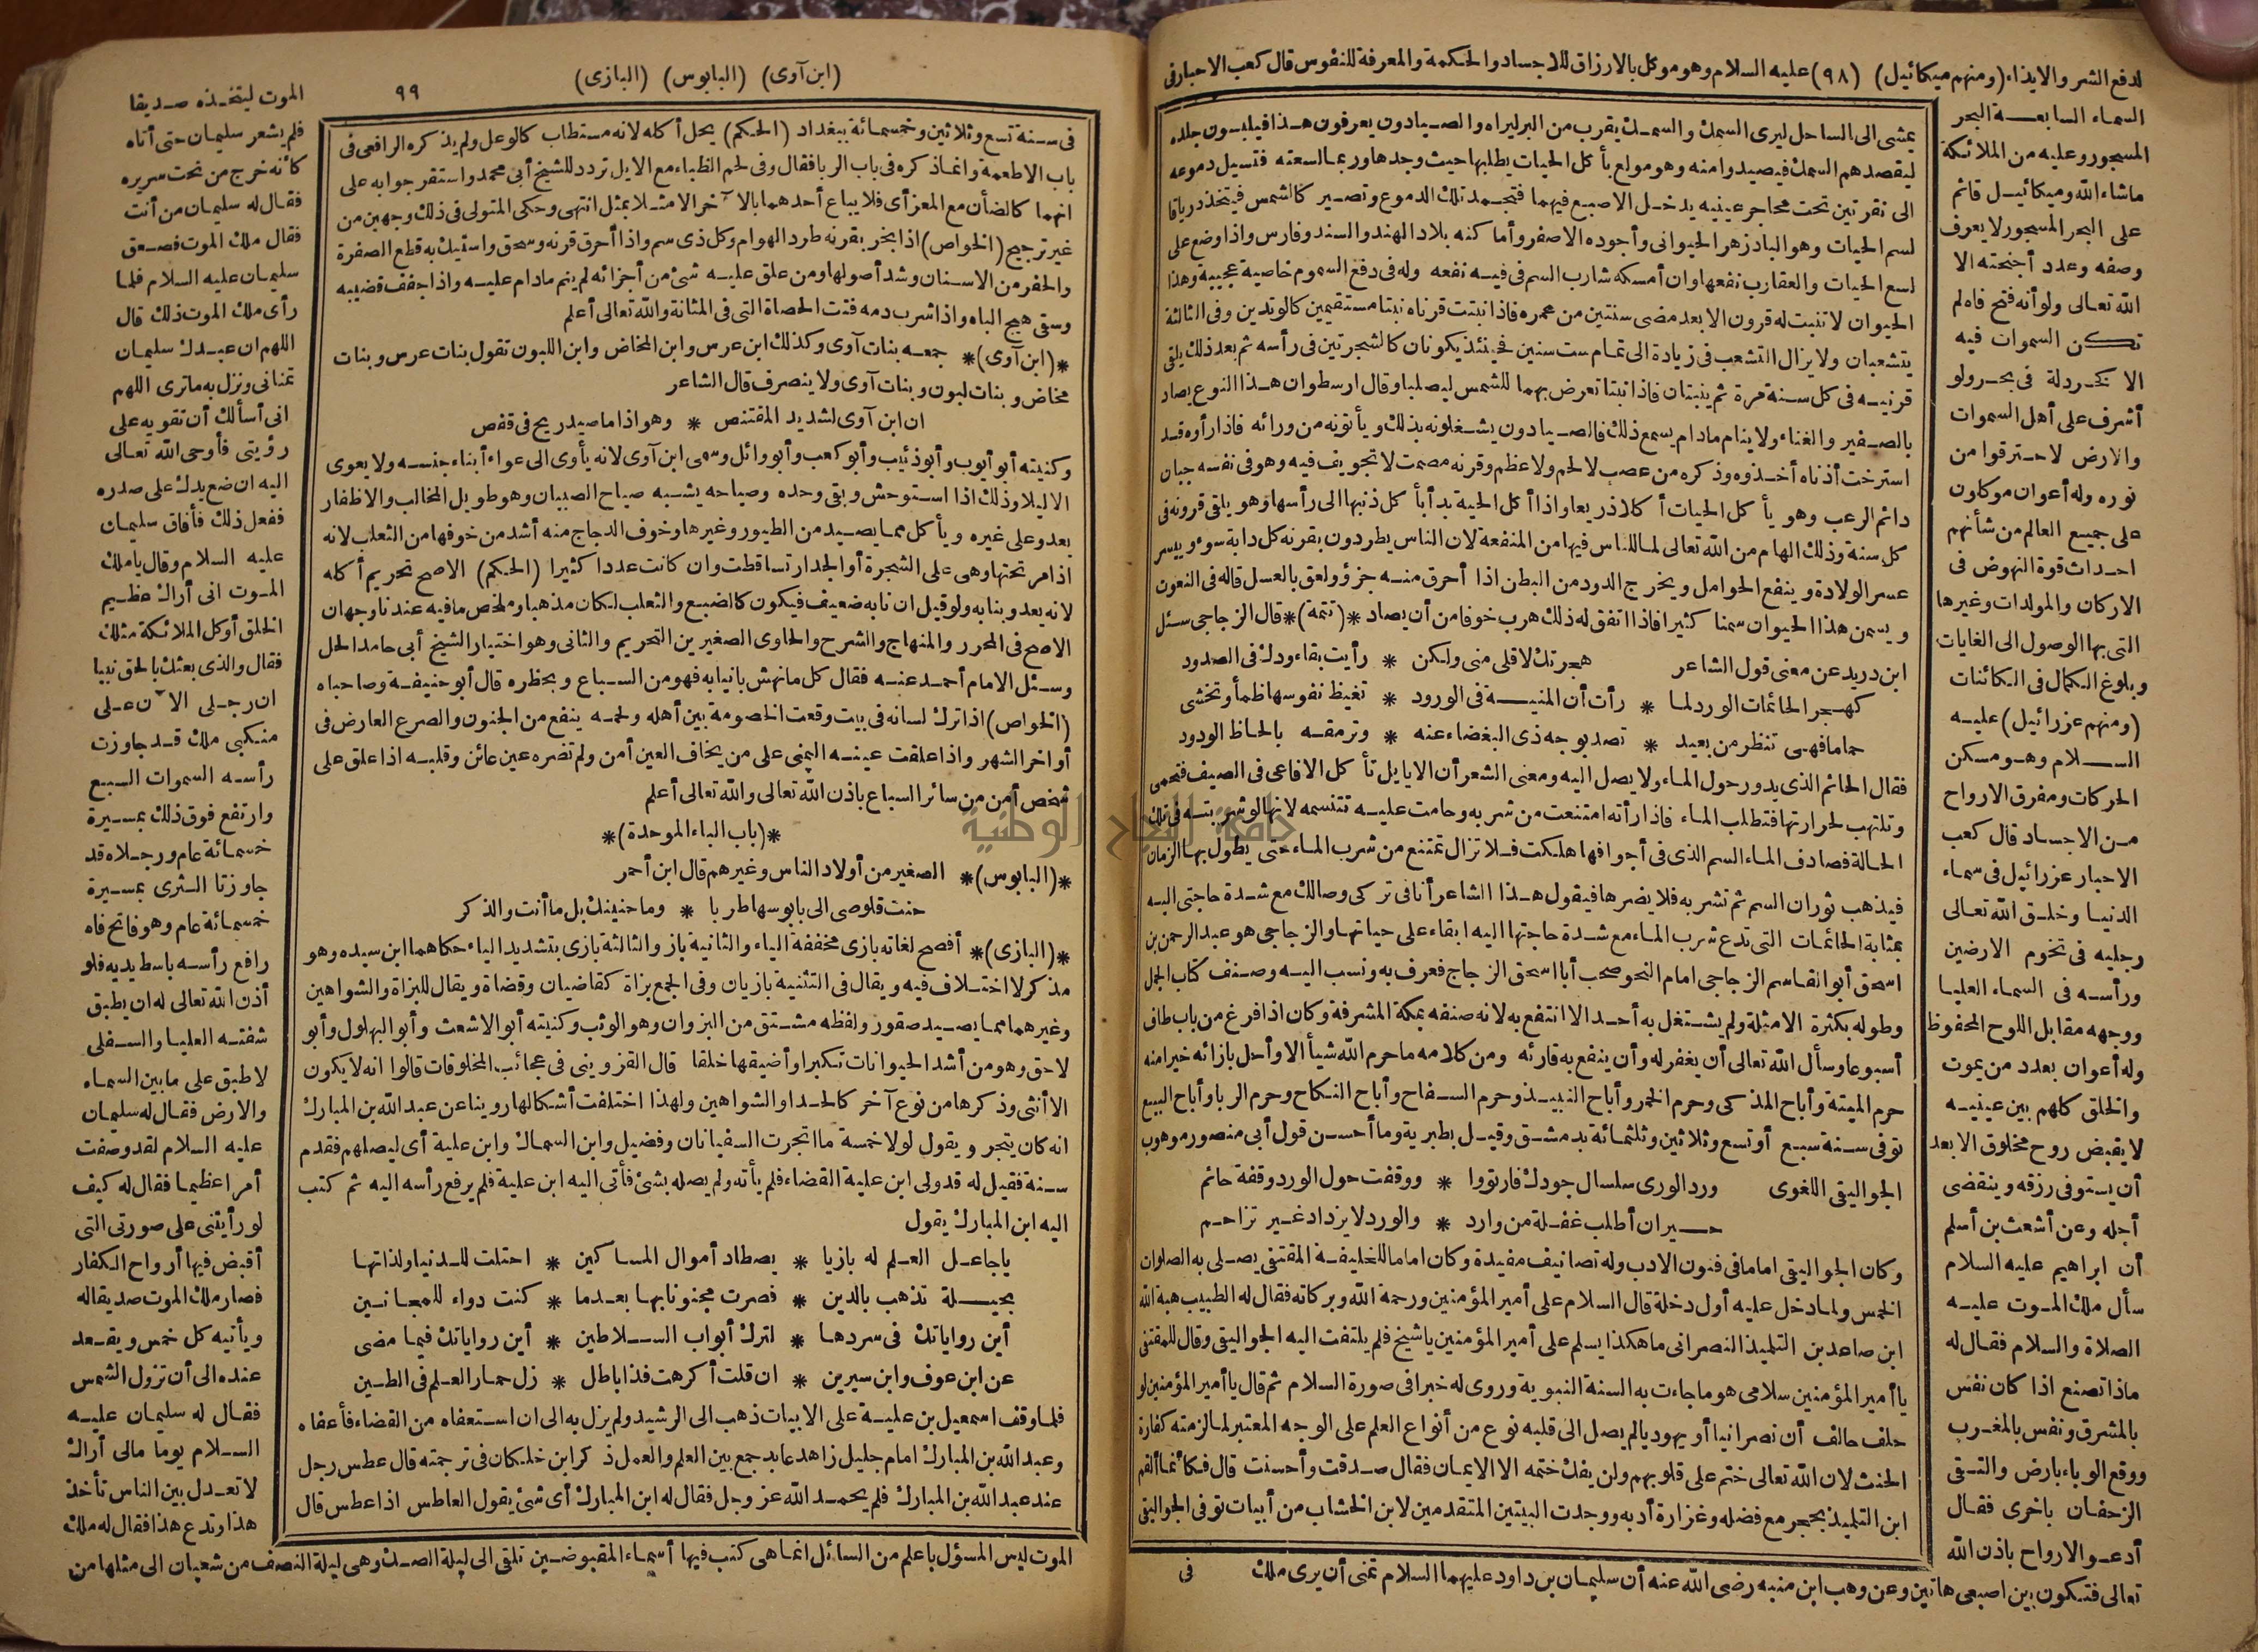 لدفع الشر والايذاء (ومنهم ميكائيل) (٩٨) عليه السلام وهو موكل بالارزاق للاجساد والحكمة والمعرفة للنفوس قال كعب الاحبار فى
السماء السابعة البحر
المسجور وعليه من الملائكة
ماشاء الله وميكائيل قائم
على البحر المسجور لا يعرف
وصفه وعدد أجنحته الا
الله تعالى ولو أنه فتح فاه لم
تكن السموات فيه
الا كخردلة فى بحر ولو
أشرف على أهل السموات
والارض لاحترقوا من
نوره وله أعوان موكلون
على جميع العالم من شأنهم
احداث قوة النهوض فى
الاركان والمولدات وغيرها
التى بها الوصول الى الغايات
وبلوغ الكمال فى الكائنات
(ومنهم عزرائيل) عليه
السلام وهو مسكن
الحركات ومفرق الارواح
من الاجساد قال كعب
الاحبار عزرائيل فى سماء
الدنيا وخلق الله تعالى
رجليه فى تخوم الارضين
ورأسه فى السماء العليا
ووجهه مقابل اللوح المحفوظ
وله أعوان بعدد من يموت
والخلق كلهم بين عينيه
لا يقبض روح مخلوق الا بعد
أن يستوفى رزقه وينقضى
أجله وعن أشعث بن أسلم
أن ابراهيم عليه السلام
سأل ملك الموت عليه
الصلاة والسلام فقال له
ماذا تصنع اذا كان نفس
بالمشرق ونفس بالمغرب
ووقع الوباء بارض والتقى
الزحفان باخرى فقال
أدعو الارواح باذن الله
تعالى فتكون بين اصبعى هاتين وعن وهب ابن منبه رضى الله عنه أن سليمان بن داود عليهما السلام تمنى أن يرى ملك
يمشى الى الساحل ليرى السمك والسمك يقرب من البر ليراه والصيادون يعرفون هذا فيلبسون جلده
ليقصدهم السمك فيصيدوا منه وهو مولع بأكل الحيات يطلبها حيث وجدها وربما لسعته فتسيل دموعه
الى نقرتين تحت محاجر عينيه يدخل الاصبع فيهما فتجمد تلك الدموع وتصير كالشمس فيتخذ درياقا
لسم الحيات وهو البادزهر الحيوانى وأجوده الاصفر وأماكنه بلاد الهند والسند وفارس واذا وضع على
لسع الحيات والعقارب نفعها وان أمسكه شارب السم فى فيه نفعه وله فى دفع السموم خاصية عجيبة وهذا
الحيوان لا تنبت له قرون الا بعد مضى سنتين من عمره فاذا نبتت قرناه نبتا مستقيمين كالوتدين وفى الثالثة
يتشعبان ولا يزال التشعب فى زيادة الى تمام ست سنين فحينئذ يكونان كالشجرتين فى رأسه ثم بعد ذلك يلقى
قرنيه فى كل سنة مرة ثم ينبتان فاذا نبتا تعرض بهما للشمس ليصلبا وقال ارسطو ان هذا النوع يصاد
بالصفير والغناء ولا ينام مادام يسمع ذلك فالصيادون يشغلونه بذلك ويأتونه من ورائه فاذا رأوه قد
استرخت أذناه أخذوه وذكره من عصب لا لحم ولا عظم وقرنه مصمت لا تجويف فيه وهو فى نفسه جبان
دائم الرعب وهو يأكل الحيات أكلا ذريعا واذا أكل الحية بدأ بأكل ذنبها الى رأسها وهو يلقى قرونه فى
كل سنة وذلك الهام من الله تعالى لما للناس فيها من المنفعة لان الناس يطردون بقرنه كل دابة سوء وييسر
عسر الولادة وينفع الحوامل ويخرج الدود من البطن اذا أحرق منه جزؤ ولعق بالعسل قاله فى النعوت
ويسمن هذا الحيوان سمنا كثيرا فاذا اتفق له ذلك هرب خوفا من أن يصاد *(تتمة)* قال الزجاجى سئل
ابن دريد عن معنى قول الشاعر هجرتك لا قلى منى ولكن * رأيت بقاء ودك فى الصدود
كهجر الحائمات الورد لما * رأت أن المنية فى الورود * تغيظ نفوسها ظمأ وتخشى
حماما فهى تنظر من بعيد * تصد بوجه ذى البغضاء عنه * وترمقه بالحاظ الودود
فقال الحائم الذى يدور حول الماء ولا يصل اليه ومعنى الشعر أن الايايل تأكل الافاعى فى الصيف فتحمى
وتلتهب لحرارتها فتطلب الماء فاذا رأته امتنعت من شربه وحامت عليه تتنسمه لانها لو شربته فى تلك
الحالة فصادف الماء السم الذى فى أجوافها هلكت فلا تزال تمتنع من شرب الماء حتى يطول بها الزمان
فيذهب ثوران السم ثم تشربه فلا يضرها فيقول هذا الشاعر أنا فى تركى وصالك مع شدة حاجتى اليه
بمثابة الحائمات التى تدع شرب الماء مع شدة حاجتها اليه ابقاء على حياتها والزجاجى هو عبد الرحمن بن
اسحق أبو القاسم الزجاجى امام النحو صحب أبا اسحق الزجاج فعرف به ونسب اليه وصنف كتاب الجمل
وطوله بكثرة الامثلة ولم يشتغل به أحد الا انتفع به لانه صنفه بمكة المشرفة وكان اذا فرغ من باب طاف
أسبوعا وسأل الله تعالى أن يغفر له وأن ينفع به قارئه ومن كلامه ما حرم الله شيأ الا وأحل بازائه خيرا منه
حرم الميتة وأباح المذكى وحرم الخمر وأباح النبيذ وحرم السفاح وأباح النكاح وحرم الربا وأباح البيع
توفى سنة سبع أو تسع وثلاثين وثلثمائة بدمشق وقيل بطبرية وما أحسن قول أبى منصور موهوب
الجواليقى اللغوى ورد الورى سلسال جودك فارتووا * ووقفت حول الورد وقفة حائم
حيران أطلب غفلة من وارد * والورد لا يزداد غير تزاحم
وكان الجواليقى اماما فى فنون الادب وله تصانيف مفيدة وكان اماما للخليفة المقتفى يصلى به الصلوات
الخمس ولما دخل عليه أول دخلة قال السلام على أمير المؤمنين ورحمة الله وبركاته فقال له الطبيب هبة الله
ابن صاعد بن التلميذ النصرانى ما هكذا يسلم على أمير المؤمنين يا شيخ فلم يلتفت اليه الجواليقى وقال للمقتفى
يا أمير المؤمنين سلامى هو ما جاءت به السنة النبوية وروى له خبرا فى صورة السلام ثم قال يا أمير المؤمنين لو
حلف حالف أن نصرانيا أو يهوديا لم يصل الى قلبه نوع من أنواع العلم على الوجه المعتبر لما لزمته كفارة
الحنث لان الله تعالى ختم على قلوبهم ولن يفك ختمه الا الايمان فقال صدقت وأحسنت قال فكأنما ألقم
ابن التلميذ بحجر مع فضله وغزارة أدبه ووجدت البيتين المتقدمين لابن الخشاب من أبيات توفى الجواليقى
فى
(ابن آوى) (البابوس) (البازى) ٩٩
فى سنة تسع وثلاثين وخمسمائة ببغداد (الحكم) يحل أكله لانه مستطاب كالوعل ولم يذكره الرافعى فى
باب الاطعمة وانما ذكره فى باب الربا فقال وفى لحم الظباء مع الايل تردد للشيخ أبى محمد واستقر جوابه على
انهما كالضأن مع المعز أى فلا يباع أحدهما بالآخر الا مثلا بمثل انتهى وحكى المتولى فى ذلك وجهين من
غير ترجيح (الخواص) اذا بخر بقرنه طرد الهوام وكل ذى سم واذا أحرق قرنه وسحق واستيك به قطع الصفرة
والحفر من الاسنان وشد أصولها ومن علق عليه شئ من أجزائه لم ينم مادام عليه واذا جفف قضيبه
وسقى هيج الباه واذا شرب دمه فتت الحصاة التى فى المثانة والله تعالى أعلم
*(ابن آوى)* جمعه بنات آوى وكذلك ابن عرس وابن المخاض وابن اللبون تقول بنات عرس وبنات
مخاض وبنات لبون وبنات آوى ولا ينصرف قال الشاعر
ان ابن آوى لشديد المقتنص * وهو اذا ما صيد ريح فى قفص
وكنيته أبو أيوب وأبو ذئيب وأبو كعب وأبو وائل وسمى ابن آوى لانه يأوى الى عواء أبناء جنسه ولا يعوى
الا ليلا وذلك اذا استوحش وبقى وحده وصياحه يشبه صياح الصبيان وهو طويل المخالب والاظفار
يعدو على غيره ويأكل مما يصيد من الطيور وغيرها وخوف الدجاج منه أشد من خوفها من الثعلب لانه
اذا مر تحتها وهى على الشجرة أو الجدار تساقطت وان كانت عددا كثيرا (الحكم) الاصح تحريم أكله
لانه يعدو بنابه ولو قيل ان نابه ضعيف فيكون كالضبع والثعلب لكان مذهبا وملخص ما فيه عندنا وجهان
الاصح فى المحرر والمنهاج والشرح والحاوى الصغيرين التحريم والثانى وهو اختيار الشيخ أبى حامد الحل
وسئل الامام أحمد عنه فقال كل ما نهش بانيابه فهو من السباع وبحظره قال أبو حنيفة وصاحباه
(الخواص) اذا ترك لسانه فى بيت وقعت الخصومة بين أهله ولحمه ينفع من الجنون والصرع العارض فى
أواخر الشهر واذا علقت عينه اليمنى على من يخاف العين أمن ولم تضره عين عائن وقلبه اذا علق على
شخص أمن من سائر السباع باذن الله تعالى والله تعالى أعلم
*(باب الباء الموحدة)*
*(البابوس)* الصغير من أولاد الناس وغيرهم قال ابن أحمر
حنت قلوصى الى بابوسها طربا * وما حنينك بل ما أنت والذكر
*(البازى)* أفصح لغاته بازى مخففة الياء والثانية باز والثالثة بازى بتشديد الياء حكاهما ابن سيده وهو
مذكر لا اختلاف فيه ويقال فى التثنية بازيان وفى الجمع بزاة كقاضيان وقضاة ويقال للبزاة والشواهين
وغيرهما مما يصيد صقور ولفظه مشتق من البزوان وهو الوثب وكنيته أبو الاشعث وأبو البهلول وأبو
لاحق وهو من أشد الحيوانات تكبرا وأضيقها خلقا قال القزوينى فى عجائب المخلوقات قالوا انه لا يكون
الا أنثى وذكرها من نوع آخر كالحدا والشواهين ولهذا اختلفت أشكالها روينا عن عبد الله بن المبارك
انه كان يتجر ويقول لولا خمسة ما اتجرت السفيانان وفضيل وابن السماك وابن علية أى ليصلهم فقدم
سنة فقيل له قد ولى ابن علية القضاء فلم يأته ولم يصله بشئ فأتى اليه ابن علية فلم يرفع رأسه اليه ثم كتب
اليه ابن المبارك يقول
يا جاعل العلم له بازيا * يصطاد أموال المساكين * احتلت للدنيا ولذاتها
بحيلة تذهب بالدين * فصرت مجنونا بها بعدما * كنت دواء للمجانين
أين رواياتك فى سردها * لترك أبواب السلاطين * أين رواياتك فيما مضى
عن ابن عوف وابن سيرين * ان قلت أكرهت فذا باطل * زل حمار العلم فى الطين
فلما وقف اسمعيل بن علية على الابيات ذهب الى الرشيد ولم يزل به الى ان استعفاه من القضاء فأعفاه
وعبد الله بن المبارك امام جليل زاهد عابد جمع بين العلم والعمل ذكر ابن خلكان فى ترجمته قال عطس رجل
عند عبد الله بن المبارك فلم يحمد الله عز وجل فقال له ابن المبارك أى شئ يقول العاطس اذا عطس قال
الموت ليتخذه صديقا
فلم يشعر سليمان حتى أتاه
كأنه خرج من تحت سريره
فقال له سليمان من أنت
فقال ملك الموت فصعق
سليمان عليه السلام فلما
رأى ملك الموت ذلك قال
اللهم ان عبدك سليمان
تمنانى ونزل به ما ترى اللهم
انى أسألك أن تقويه على
رؤيتى فأوحى الله تعالى
اليه ان ضع يدك على صدره
ففعل ذلك فأفاق سليمان
عليه السلام وقال يا ملك
الموت انى أراك عظيم
الخلق أوكل الملائكة مثلك
فقال والذى بعثك بالحق نبيا
ان رجلى الآن على
منكبى ملك قد جاوزت
رأسه السموات السبع
وارتفع فوق ذلك بمسيرة
خمسمائة عام ورجلاه قد
جاوزتا الثرى بمسيرة
خمسمائة عام وهو فاتح فاه
رافع رأسه باسط يديه فلو
أذن الله تعالى له ان يطبق
شفته العليا والسفلى
لاطبق على ما بين السماء
والارض فقال له سليمان
عليه السلام لقد وصفت
أمرا عظيما فقال له كيف
لو رأيتنى على صورتى التى
أقبض فيها أرواح الكفار
فصار ملك الموت صديقا له
ويأتيه كل خمس ويقعد
عنده الى أن تزول الشمس
فقال له سليمان عليه
السلام يوما مالى أراك
لا تعدل بين الناس تأخذ
هذا وتدع هذا فقال له ملك
الموت ليس المسؤل باعلم من السائل انما هى كتب فيها أسماء المقبوضين تلقى الى ليلة الصك وهى ليلة النصف من شعبان الى مثلها من
جامعة النجاح الوطنية